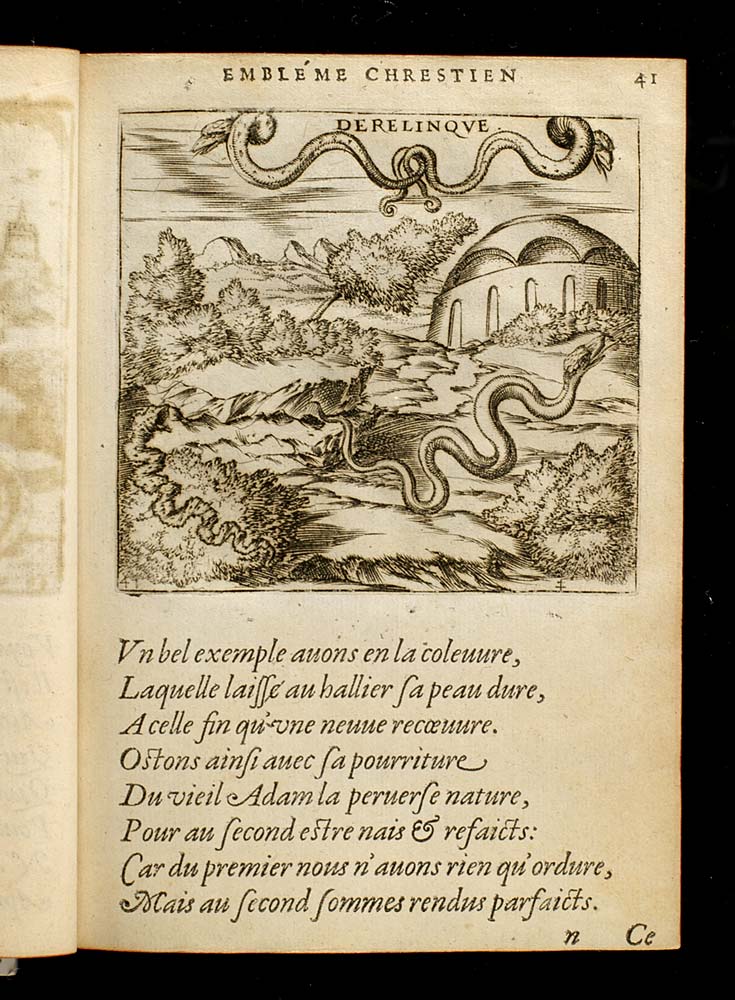 EMBLÉME CHRESTIEN 41
DERELINQVE
Vn bel exemple auons en la coleuure,
Laquelle laiſſé au hallier ſa peau dure,
A celle fin qu'vne neuue recœuure.
Oſtons ainſi auec ſa pourriture
Du vieil Adam la peruerſe nature,
Pour au ſecond eſtre nais & refaicts:
Car du premier nous n'auons rien qu'ordure,
Mais au ſecond ſommes rendus parfaicts.
n Ce